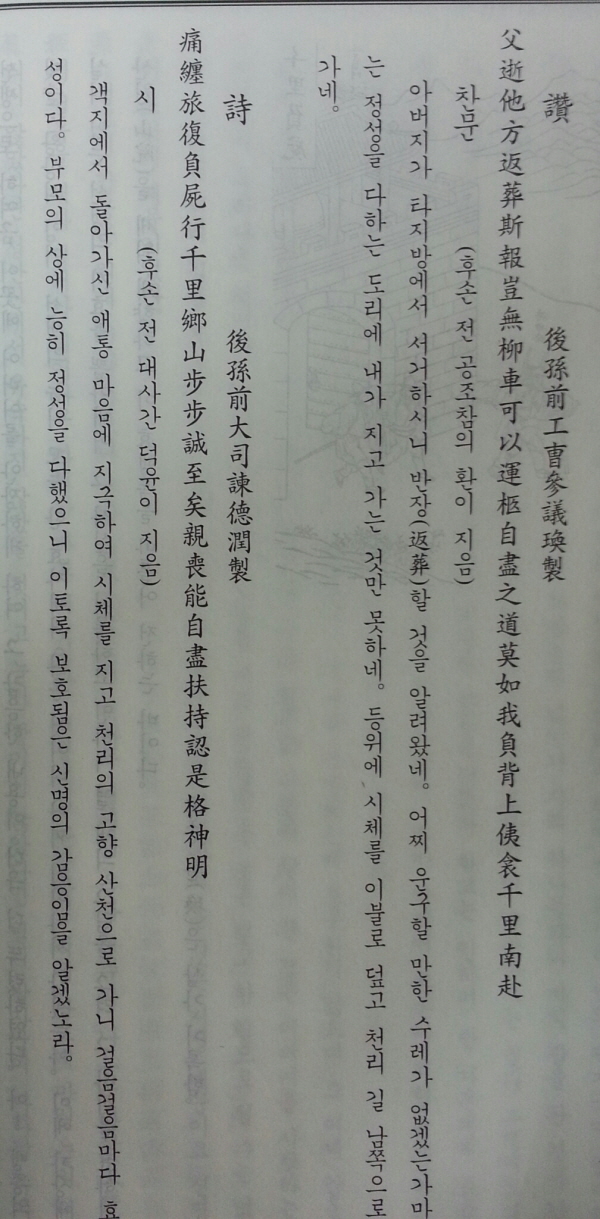 讚
後孫前工曺參議瑍製
父逝他方返葬斯報豈無柳車可以運柩自盡之道莫如我負背上侇衾千里南赴
찬문 (후손 전 공조참의 환이 지음)
아버지가 타지방에서 서거하시니 반장(返葬)할 것을 알려왔네。 어찌 운구할 만한 수레가 없겠는가마
는 정성을 다하는 도리에 내가 지고 가는 것만 못하네。 등위에 시체를 이불로 덮고 천리 길 남쪽으로
가네。
詩
後孫前大司諫德潤製
痛纏旅復負屍行千里鄕山步步誠至矣親喪能自盡扶持認是格神明
시 (후손 전 대사간 덕윤이 지음)
객지에서 돌아가신 애통 마음에 지극하여 시체를 지고 천리의 고향 산천으로 가니 걸음걸음마다 효
성이다。 부모의 상에 능히 정성을 다했으니 이토록 보호됨은 신명의 감응임을 알겠노라。